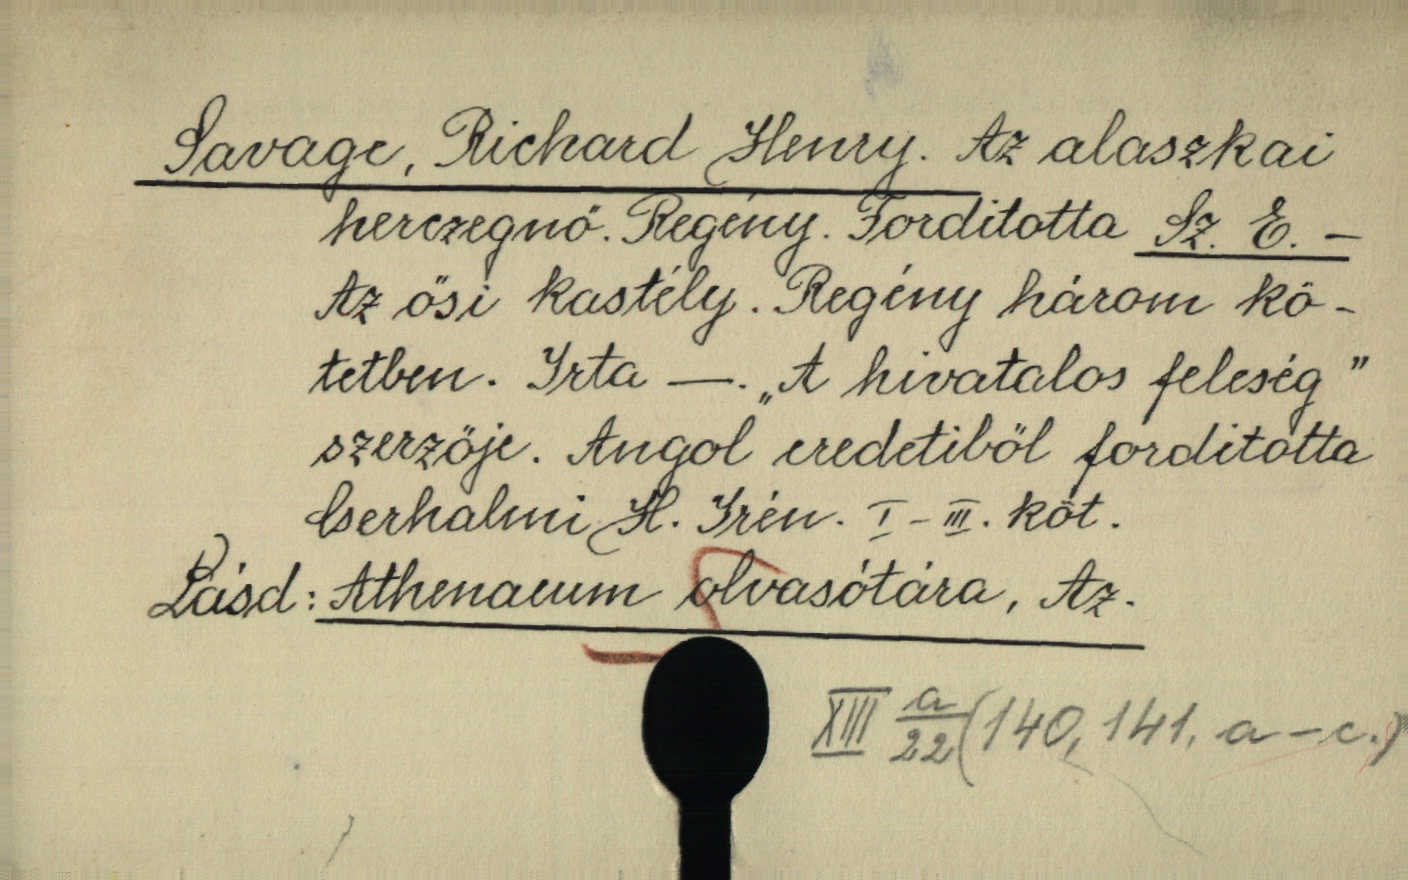 Savage, Richard Henry. Az alaszkai
herczegnő. Regény. Forditotta Sz. E. –
Az ősi kastély. Regény három kö-
tetben. Irta —. „A hivatalos feleség”
szerzője. Angol eredetiből forditotta
Cserhalmi H. Irén. I–III. köt.
Lásd: Athenaeum olvasótára, Az.
XIII a/22 (140, 141. a–c.)